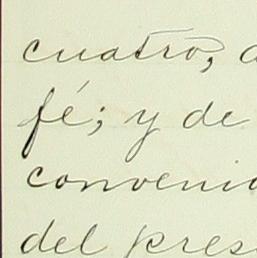 cuatro,
fé; y de
convenid
del pres